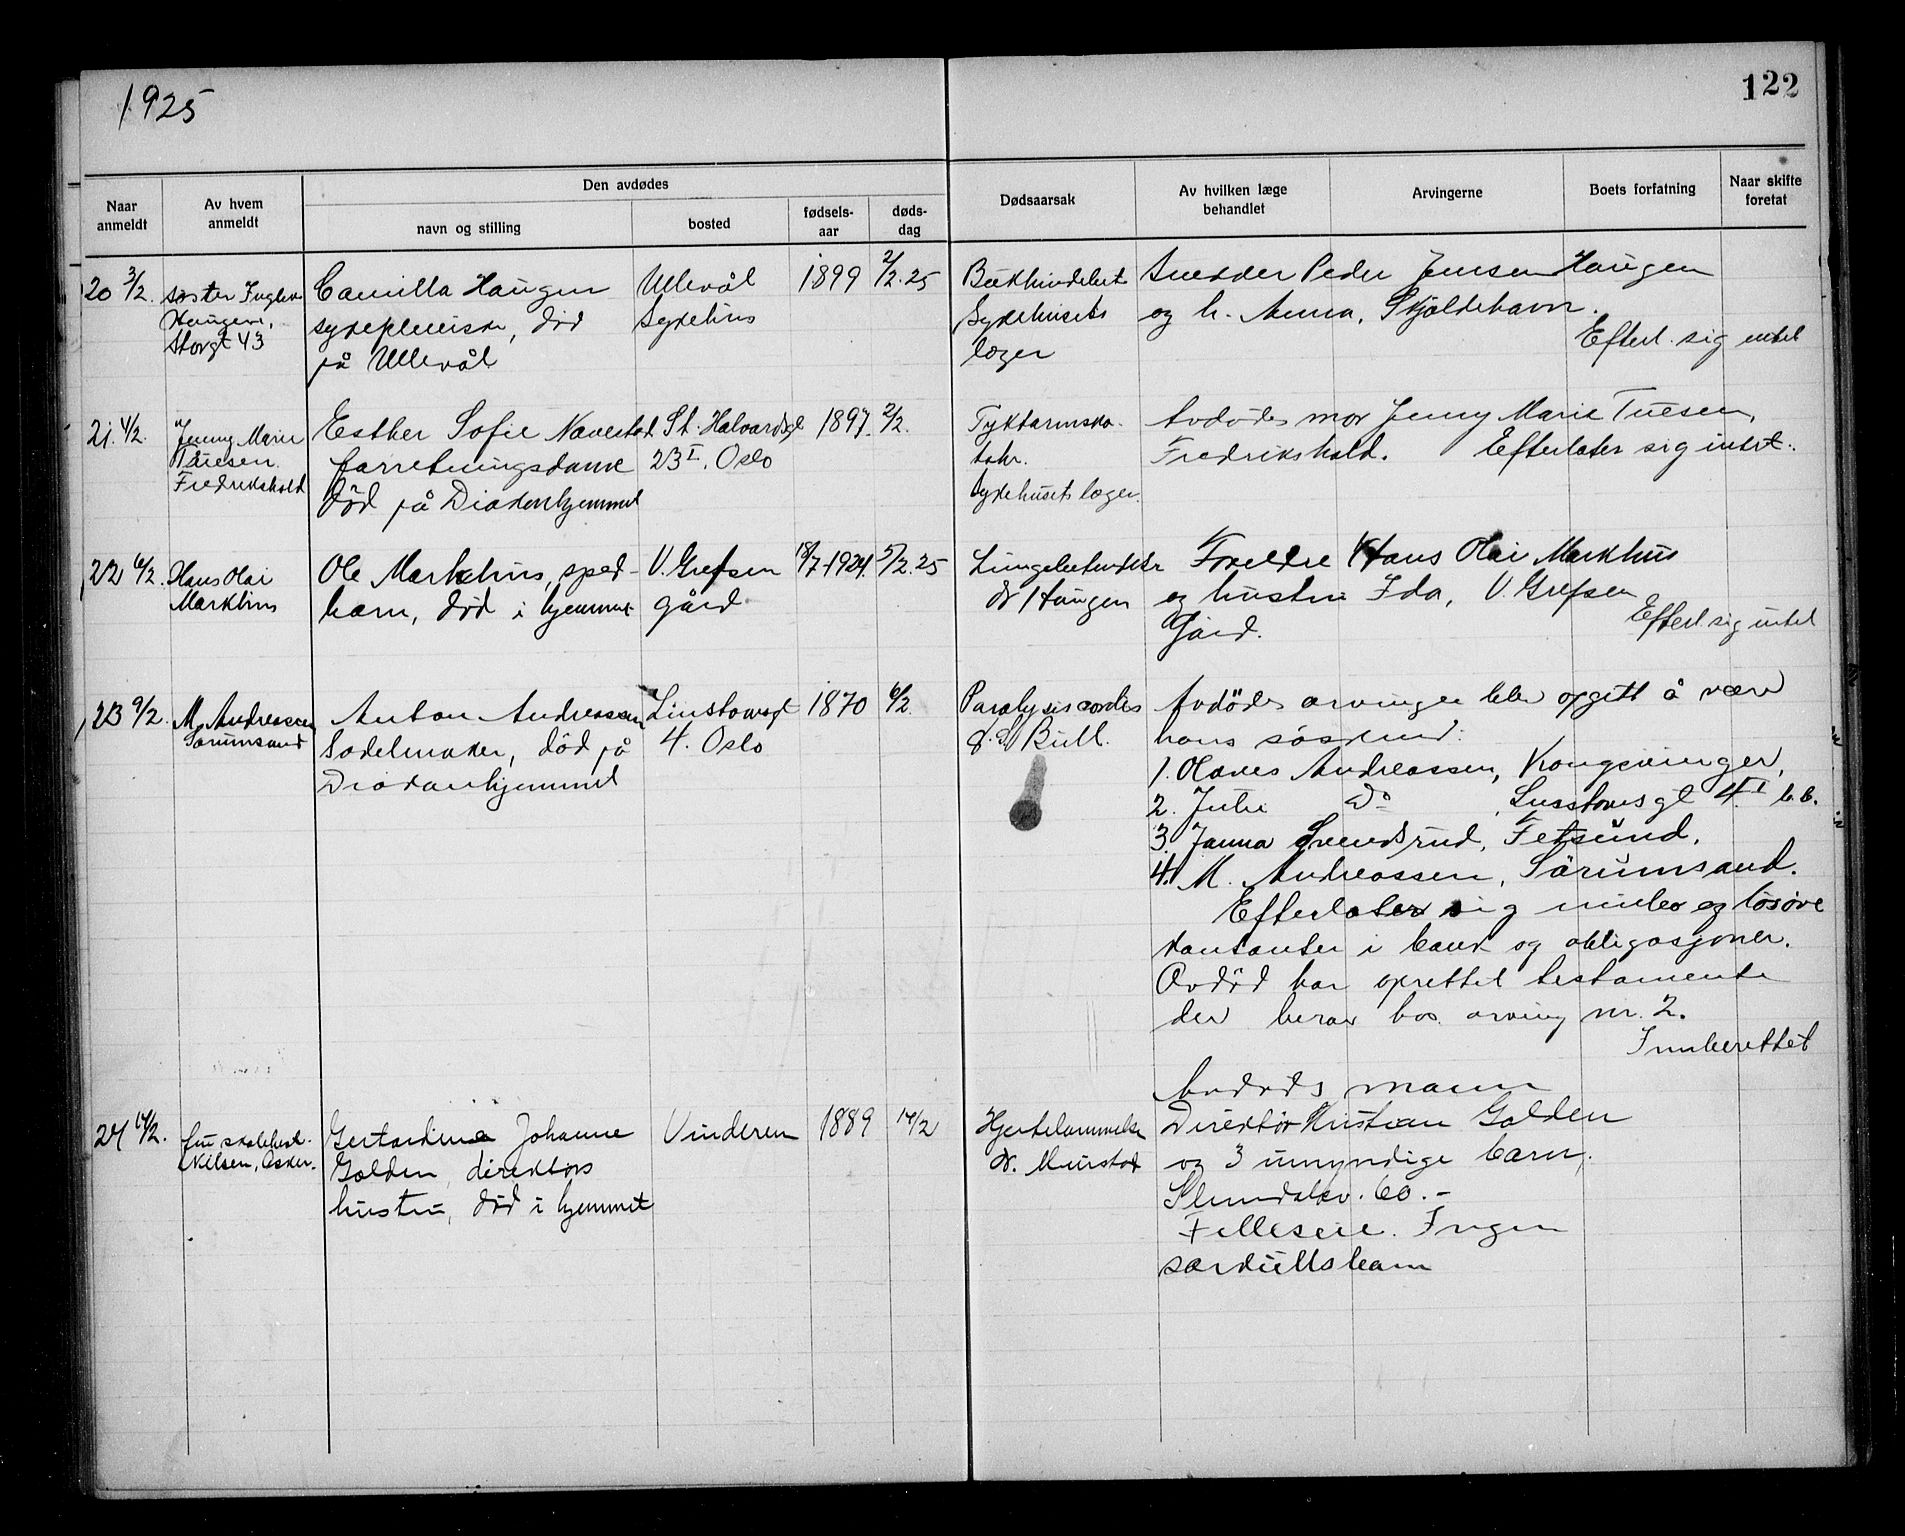 1925
122
Naar anmeldt
Av hvem anmeldt
Den avdødes
navn og stilling
bosted
fødsels-aar
døds-dag
Dødsaarsak
Av hvilken læge behandlet
Arvingerne
Boets forfatning
Naar skifte foretat
20 3/2. søster
Haugen,
Storgt 43
Camilla Haugen
sykepleierske, död
på Ullevål
Ullevål
Sykehus
1899 2/2.25
Bukhindebet
Sykehusets
læger
Snekker Peder Jensen Haugen
og h. Anna, Skjoldehavn.
Efterl. sig intet
21. 4/2. Jenny Marie
Tuesen
Fredrikshald
Esther Sofie Navestad
forretningsdame
död på Diakonhjemmet
St. Halvardsgt
23 I, Oslo
1897. 2/2.
Tyktarmska-
tahr.
Sykehusets læger.
Avdødes mor Jenny Marie Tuesen,
Fredrikshald. Efterlater sig intet.
22 6/2. Hans Olai
Markhus
Ole Markhus, sped-
barn, död i hjemmet
V. Grefsen
gård
18/7-1924. 5/2.25
Lungebetendelse
dr Haugen
Foreldre Hans Olai Markhus
og hustru Ida, V. Grefsen
Gård.
Efterl sig intet
23 9/2. M. Andreassen
Sörumsand
Anton Andreassen
Sadelmaker, död på
Diakonhjemmet
Linstowsgt
4. Oslo
1870 6/2.
Paralysis cordis
d. Bull.
Avdödes arvinger blev opgitt å være
hans söskend:
1. Olaves Andreassen, Kongsvinger,
2. Julie do, Linstowsgt 4 I b.b.
3. Janna Svendsrud, Fetsund,
4. M. Andreassen, Sörumsand.
Efterlater sig innbo og lösöre
kontanter i bank og obligasjoner.
Avdöd har oprettet testamente
der beror hos arving nr. 2.
Innberettet
24 17/2. fru skolebest.
Nilsen, Asker.
Gertardine Johanne
Golden, direktørs
hustru, död i hjemmet
Vinderen
1889 14/2
Hjertelammelse
dr.
Avdöds mann
Direktör Kristian Golden
og 3 umyndige barn,
60.-
Felleseie. Ingen
særkullsbarn